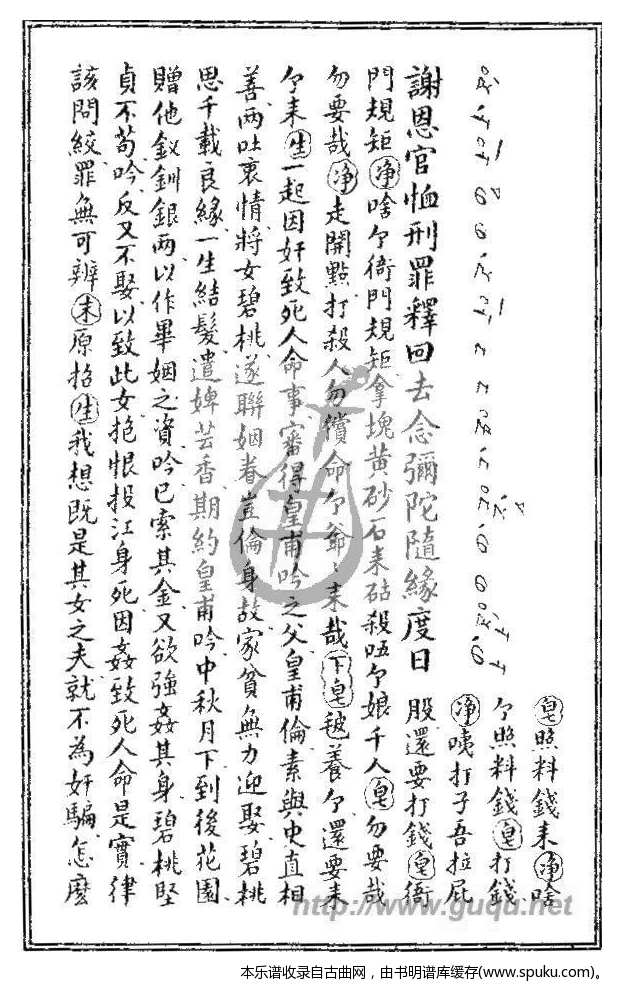 謝恩官恤刑罪釋回去念彌陀隨緣度日
皂照料錢耒淨啥
亇照料錢皂打錢
淨咦打子吾拉屁
股還要打錢皂衙
門規矩淨啥亇衙門規矩拿塊黄砂石耒砧殺唔亇娘千人皂勿要哉
勿要哉淨走開點打殺人勿償命亇爺〻耒哉下皂養亇還要耒
亇耒生一起因奸致死人命事審得皇甫吟之父皇甫倫素與史直相
善两吐衷情將女碧桃遂聯姻眷豈倫身故家貧無力迎娶碧桃
思千載良緣一生結髮遣婢芸香期約皇甫吟中秋月下到後花園
贈他釵釧銀两以作畢姻之資吟已索其金又欲強姦其身碧桃堅
貞不苟吟反又不娶以致此女抱恨投江身死因姦致死人命是實律
該問絞罪無可辨末原招生我想既是其女之夫就不為奸騙怎麽
http://www.guqu.net
本乐谱收录自古曲网，由书明谱库缓存(www.spuku.com)。